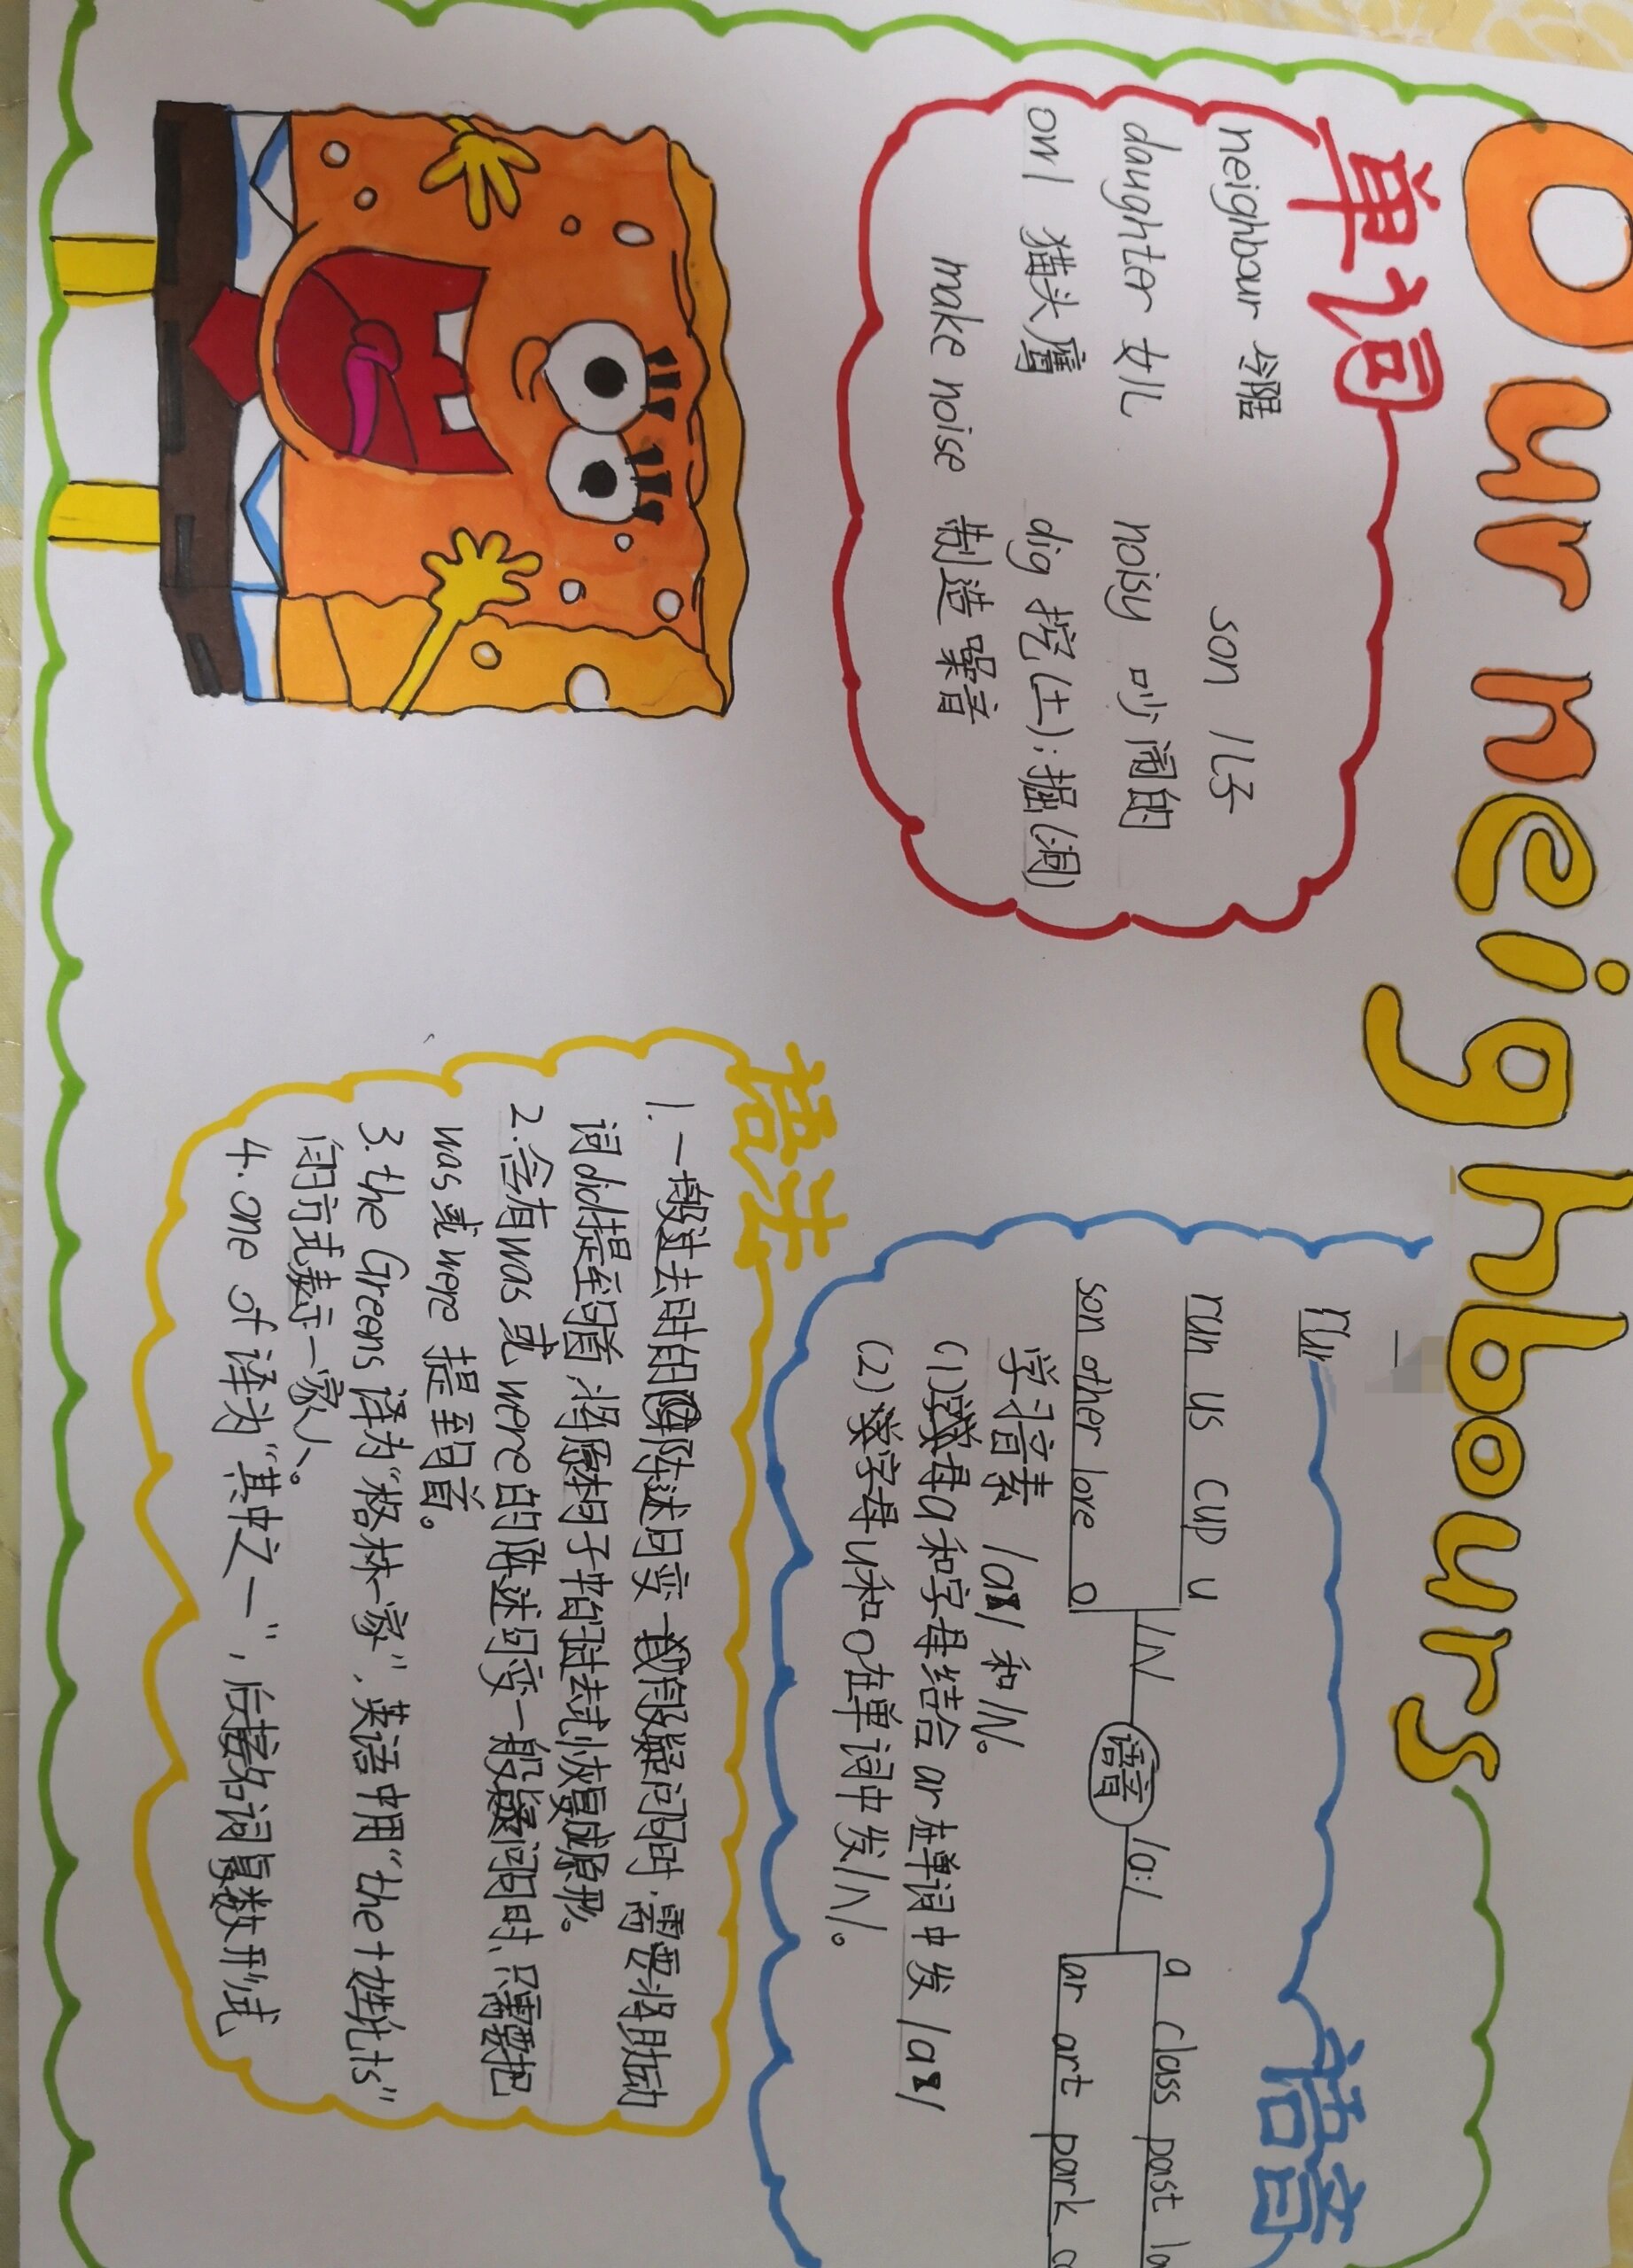 Our neighbours
单词
neighbour 邻居 son 儿子
daughter 女儿 noisy 吵闹的
owl 猫头鹰 dig 挖(土);掘(洞)
make noise 制造噪音
语音
run
run us cup u
son other love o
/ʌ/
语音
/a:/
a class past
ar art park
学习音素 /a:/ 和 /ʌ/。
(1)字母a和字母结合ar在单词中发/a:/
(2)字母u和o在单词中发/ʌ/。
语法
1.一般过去时的陈述句变一般疑问句时,需要将助动
词did提至句首,将原来句子中的过去式恢复成原形。
2.含有was或were的陈述句变一般疑问句时,只需要把
was或were提至句首。
3.the Greens译为“格林一家”,英语中用“the+姓氏s”
的方式表示一家人。
4.one of译为“其中之一”,后接名词复数形式